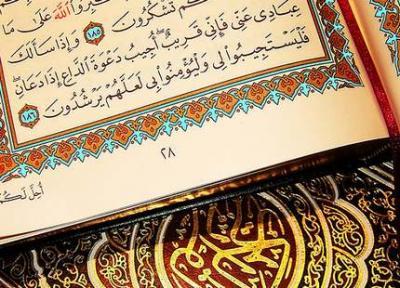 ٱللَّهَ عَلَىٰ مَا
تَشْكُرُونَ ١٨٥ وَإِذَا سَأَلَكَ
عِبَادِى عَنِّى فَإِنِّى قَرِيبٌ أُجِيبُ دَعْوَةَ ٱلدَّاعِ إِذَا دَعَانِ
فَلْيَسْتَجِيبُوا۟ لِى وَلْيُؤْمِنُوا۟ بِى لَعَلَّهُمْ يَرْشُدُونَ ١٨٦
٢٨
أُحِلَّ